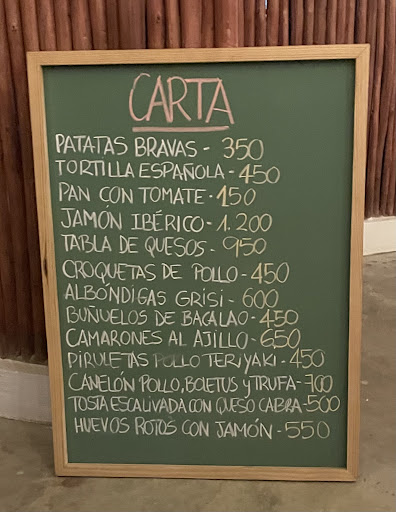 CARTA
PATATAS BRAVAS - 350
TORTILLA ESPAÑOLA - 450
PAN CON TOMATE - 150
JAMÓN IBÉRICO - 1.200
TABLA DE QUESOS - 950
CROQUETAS DE POLLO - 450
ALBÓNDIGAS GRISI - 600
BUÑUELOS DE BACALAO - 450
CAMARONES AL AJILLO - 650
PIRULETAS POLLO TERIYAKI - 450
CANELÓN POLLO, BOLETUS y TRUFA - 700
TOSTA ESCALIVADA CON QUESO CABRA - 500
HUEVOS ROTOS CON JAMÓN - 550